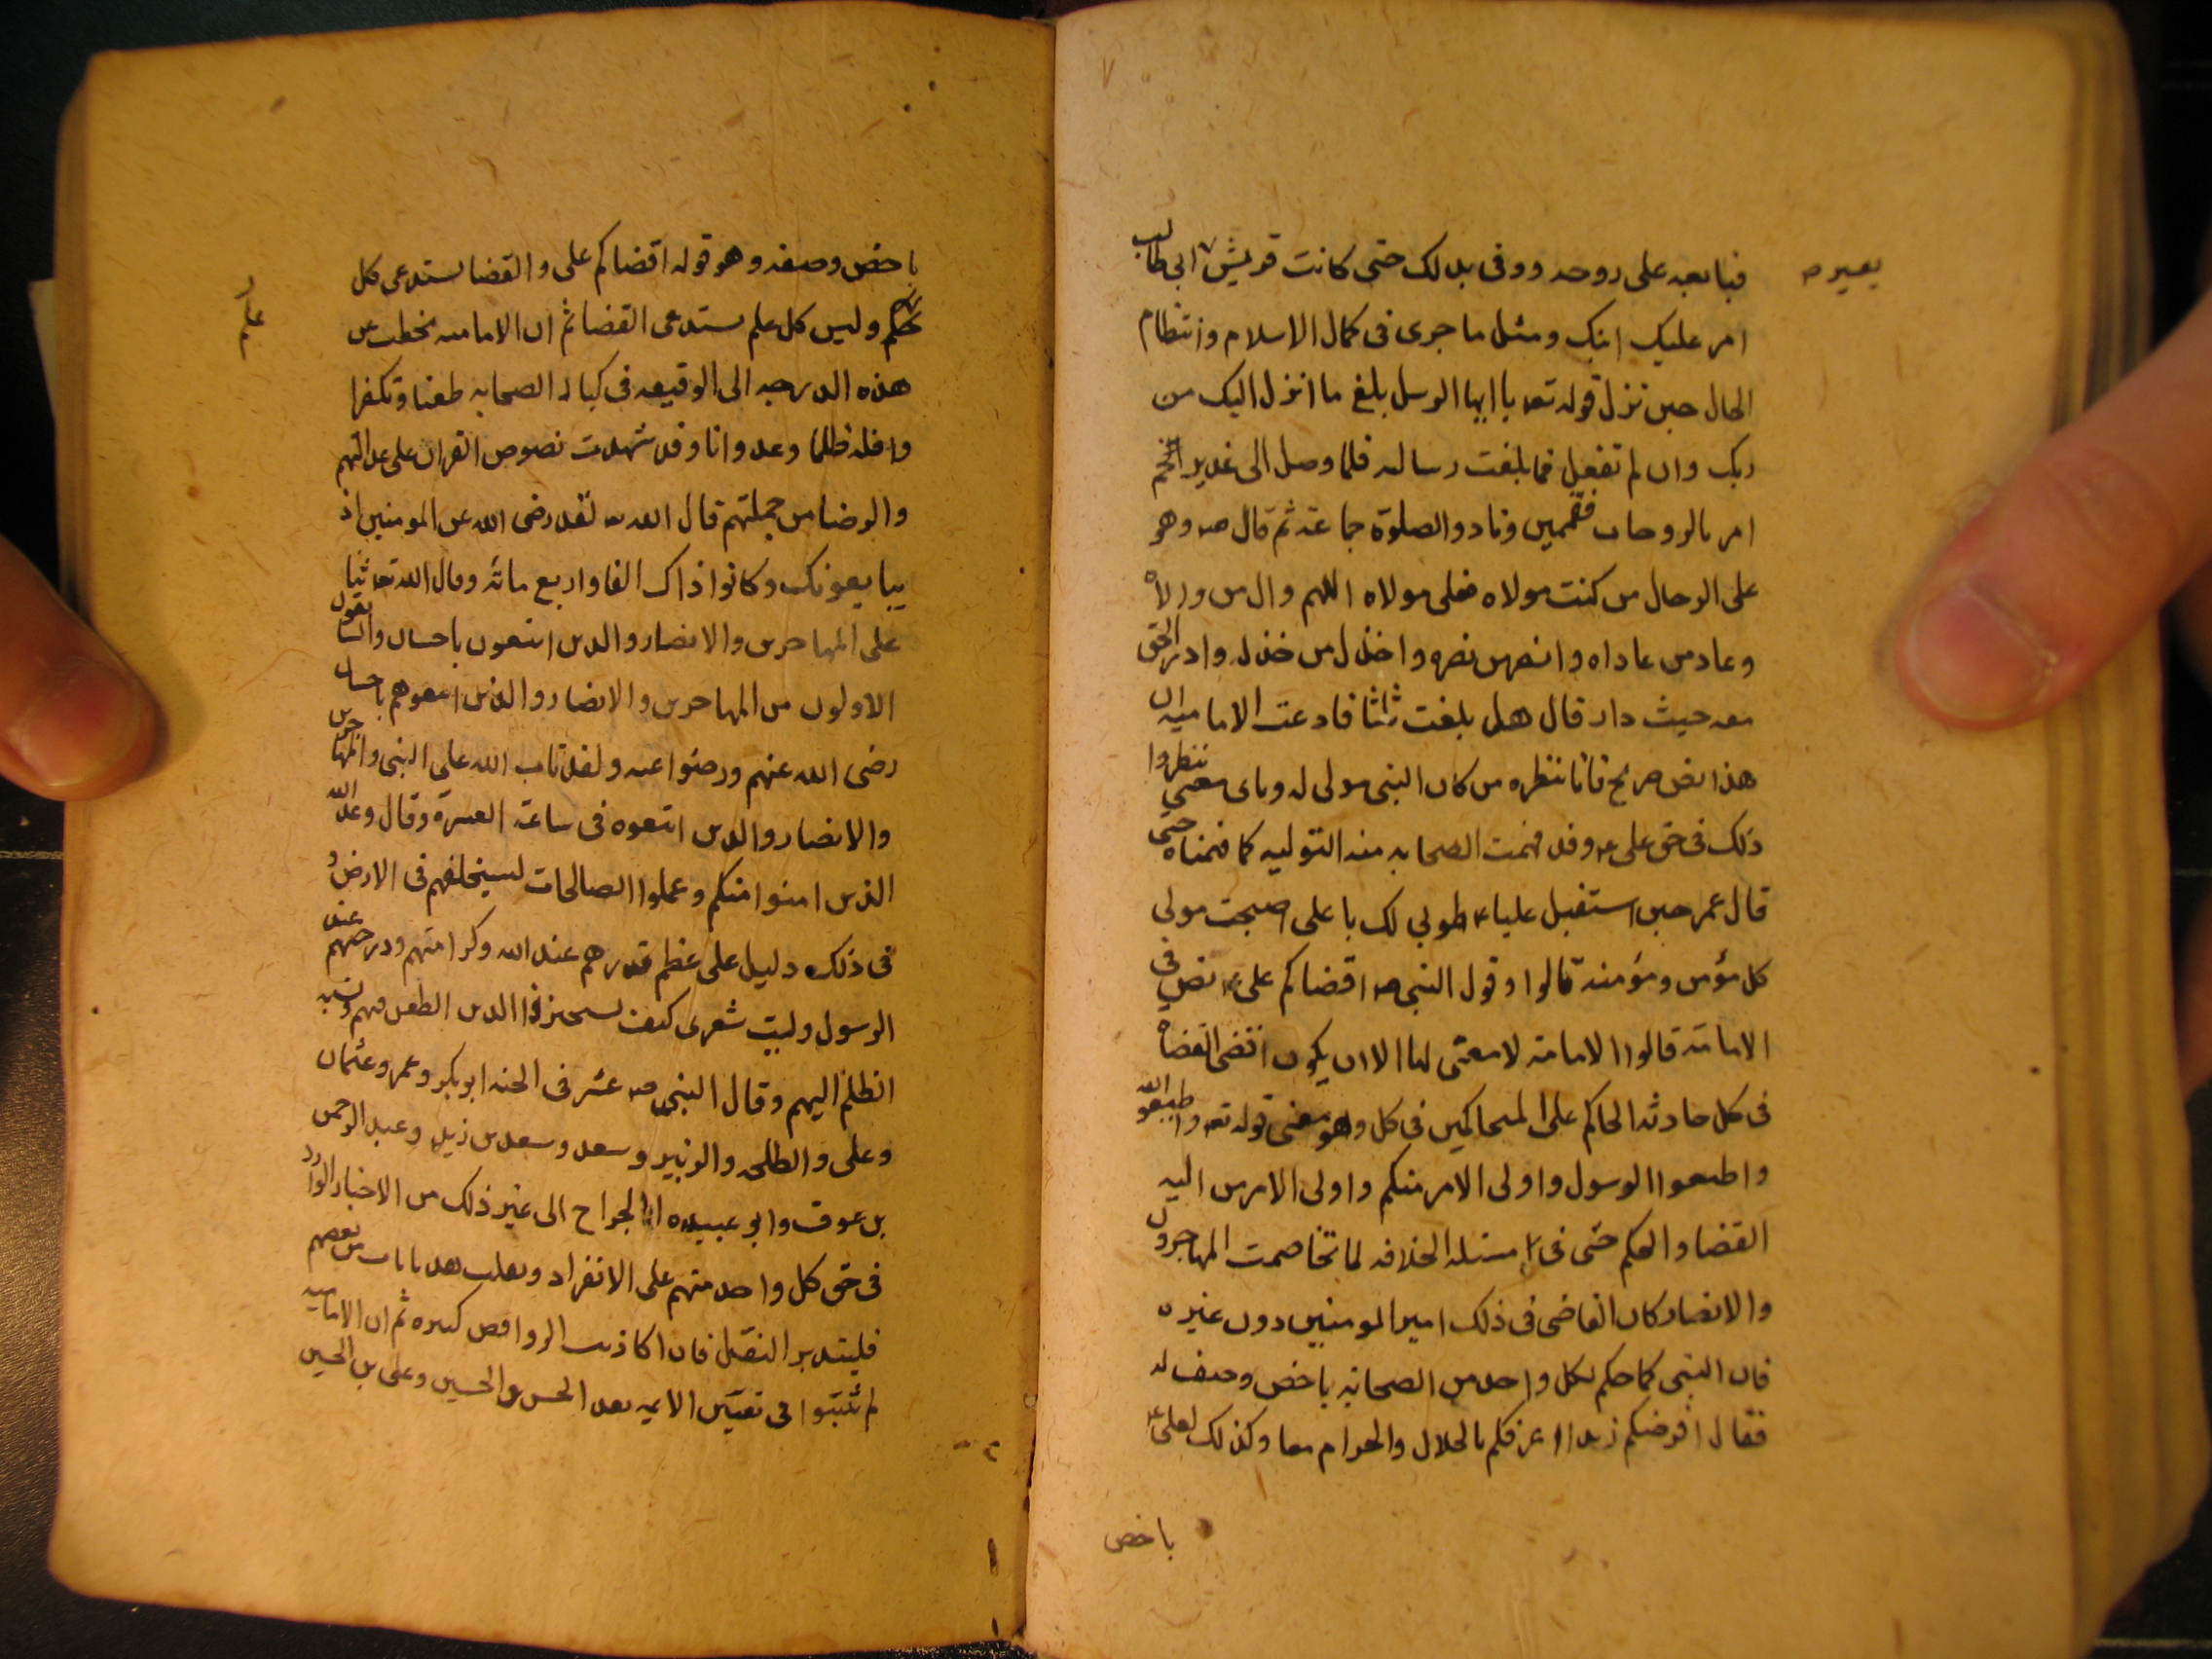 فبايعه على روحه ووفى بذلك حتى كانت قريش ابى طالب
يعيره
امر عليك ابنك ومثل ما جرى فى كمال الاسلام وانتظام
الحال حين نزل قوله تعه يا ايها الرسل بلغ ما انزل اليك من
ربك وان لم تفعل فما بلغت رساله فلما وصل الى غدير الخم
امر بالروحات فقممن ونادوا الصلوة جماعة ثم قال صه وهو
على الرحال من كنت مولاه فعلى مولاه اللهم وال من والاه
وعاد من عاداه وانصر من نصره واخذل من خذله وادر الحق
معه حيث دار قال هل بلغت ثلثا فادعت الاماميه ان
هذا نص صريح فانا ننظره من كان النبى مولى له وباى معنى ننظروا
ذلك فى حق على عه وقد فهمت الصحابه منه التوليه كما فهمناه حتى
قال عمر حين استقبل عليا عه طوبي لك يا على اصبحت مولى
كل مؤمن ومؤمنة قالوا وقول النبى صه اقضاكم على عه نص فى
الامامة قالوا الامامة لا معنى لها الا ان يكون اقضى القضاه
فى كل حادثه الحاكم على المتحاكمين فى كل وهو معنى قوله تعه واطيعو الله
واطيعوا الرسول واولى الامر منكم واولى الامر من اليه
القضا والحكم حتى فى مسئله الخلافه لما تخاصمت المهاجرون
والانصار كان القاضى فى ذلك امير المومنين دون غيره
فان النبى كما حكم لكل واحد من الصحابة باخص وصف له
فقال افرضكم زيد اعرفكم بالحلال والحرام معا وكذلك لعلى عه
باخص
باخص وصفه وهو قوله اقضاكم على والقضا يستدعى كل
حكم وليس كل علم يستدعى القضا ثم ان الاماميه تخطت عن
هذه الدرجه الى الوقيعه فى كبار الصحابه طعنا وتكفرا
واقله ظلما وعدوانا وقد شهدت نصوص القران على عدالتهم
والرضا من جملتهم قال الله تعه لقد رضى الله عن المومنين اذ
يبايعونك وكانوا ذاك الفا واربع مائه وقال الله تعه ثنا
على المهاجرين والانصار والدين اتبعون باحسان والسابقون
الاولون من المهاجرين والانصار والذين اتبعوهم باحسان
رضى الله عنهم ورضوا عنه ولقد تاب الله على النبى والمهاجرين
والانصار والدين اتبعوه فى ساعة العسرة وقال وعد الله
الذين امنوا منكم وعملوا الصالحات ليستخلفهم فى الارض و
فى ذلك دليل على عظم قدرهم عند الله وكرامتهم ودرجتهم عند
الرسول وليت شعرى كيف يستجيز ذا الدين الطعن فيهم ونسبه
الظلم اليهم وقال النبى صه عشر فى الجنه ابو بكر وعمر وعثمان
وعلى والطلحه والزبير وسعد وسعد بن زيد وعبد الرحمن
بن عوف وابو عبيده الجراح الى غير ذلك من الاخبار الوارد
فى حق كل واحد منهم على الانفراد ونقلت من بعضهم
فليتدبر النقل فان اكاذيب الروافض كثيره ثم ان الاماميه
لم يثبتوا فى تعيين الايمه بعد الحسن والحسين وعلى بن الحسين